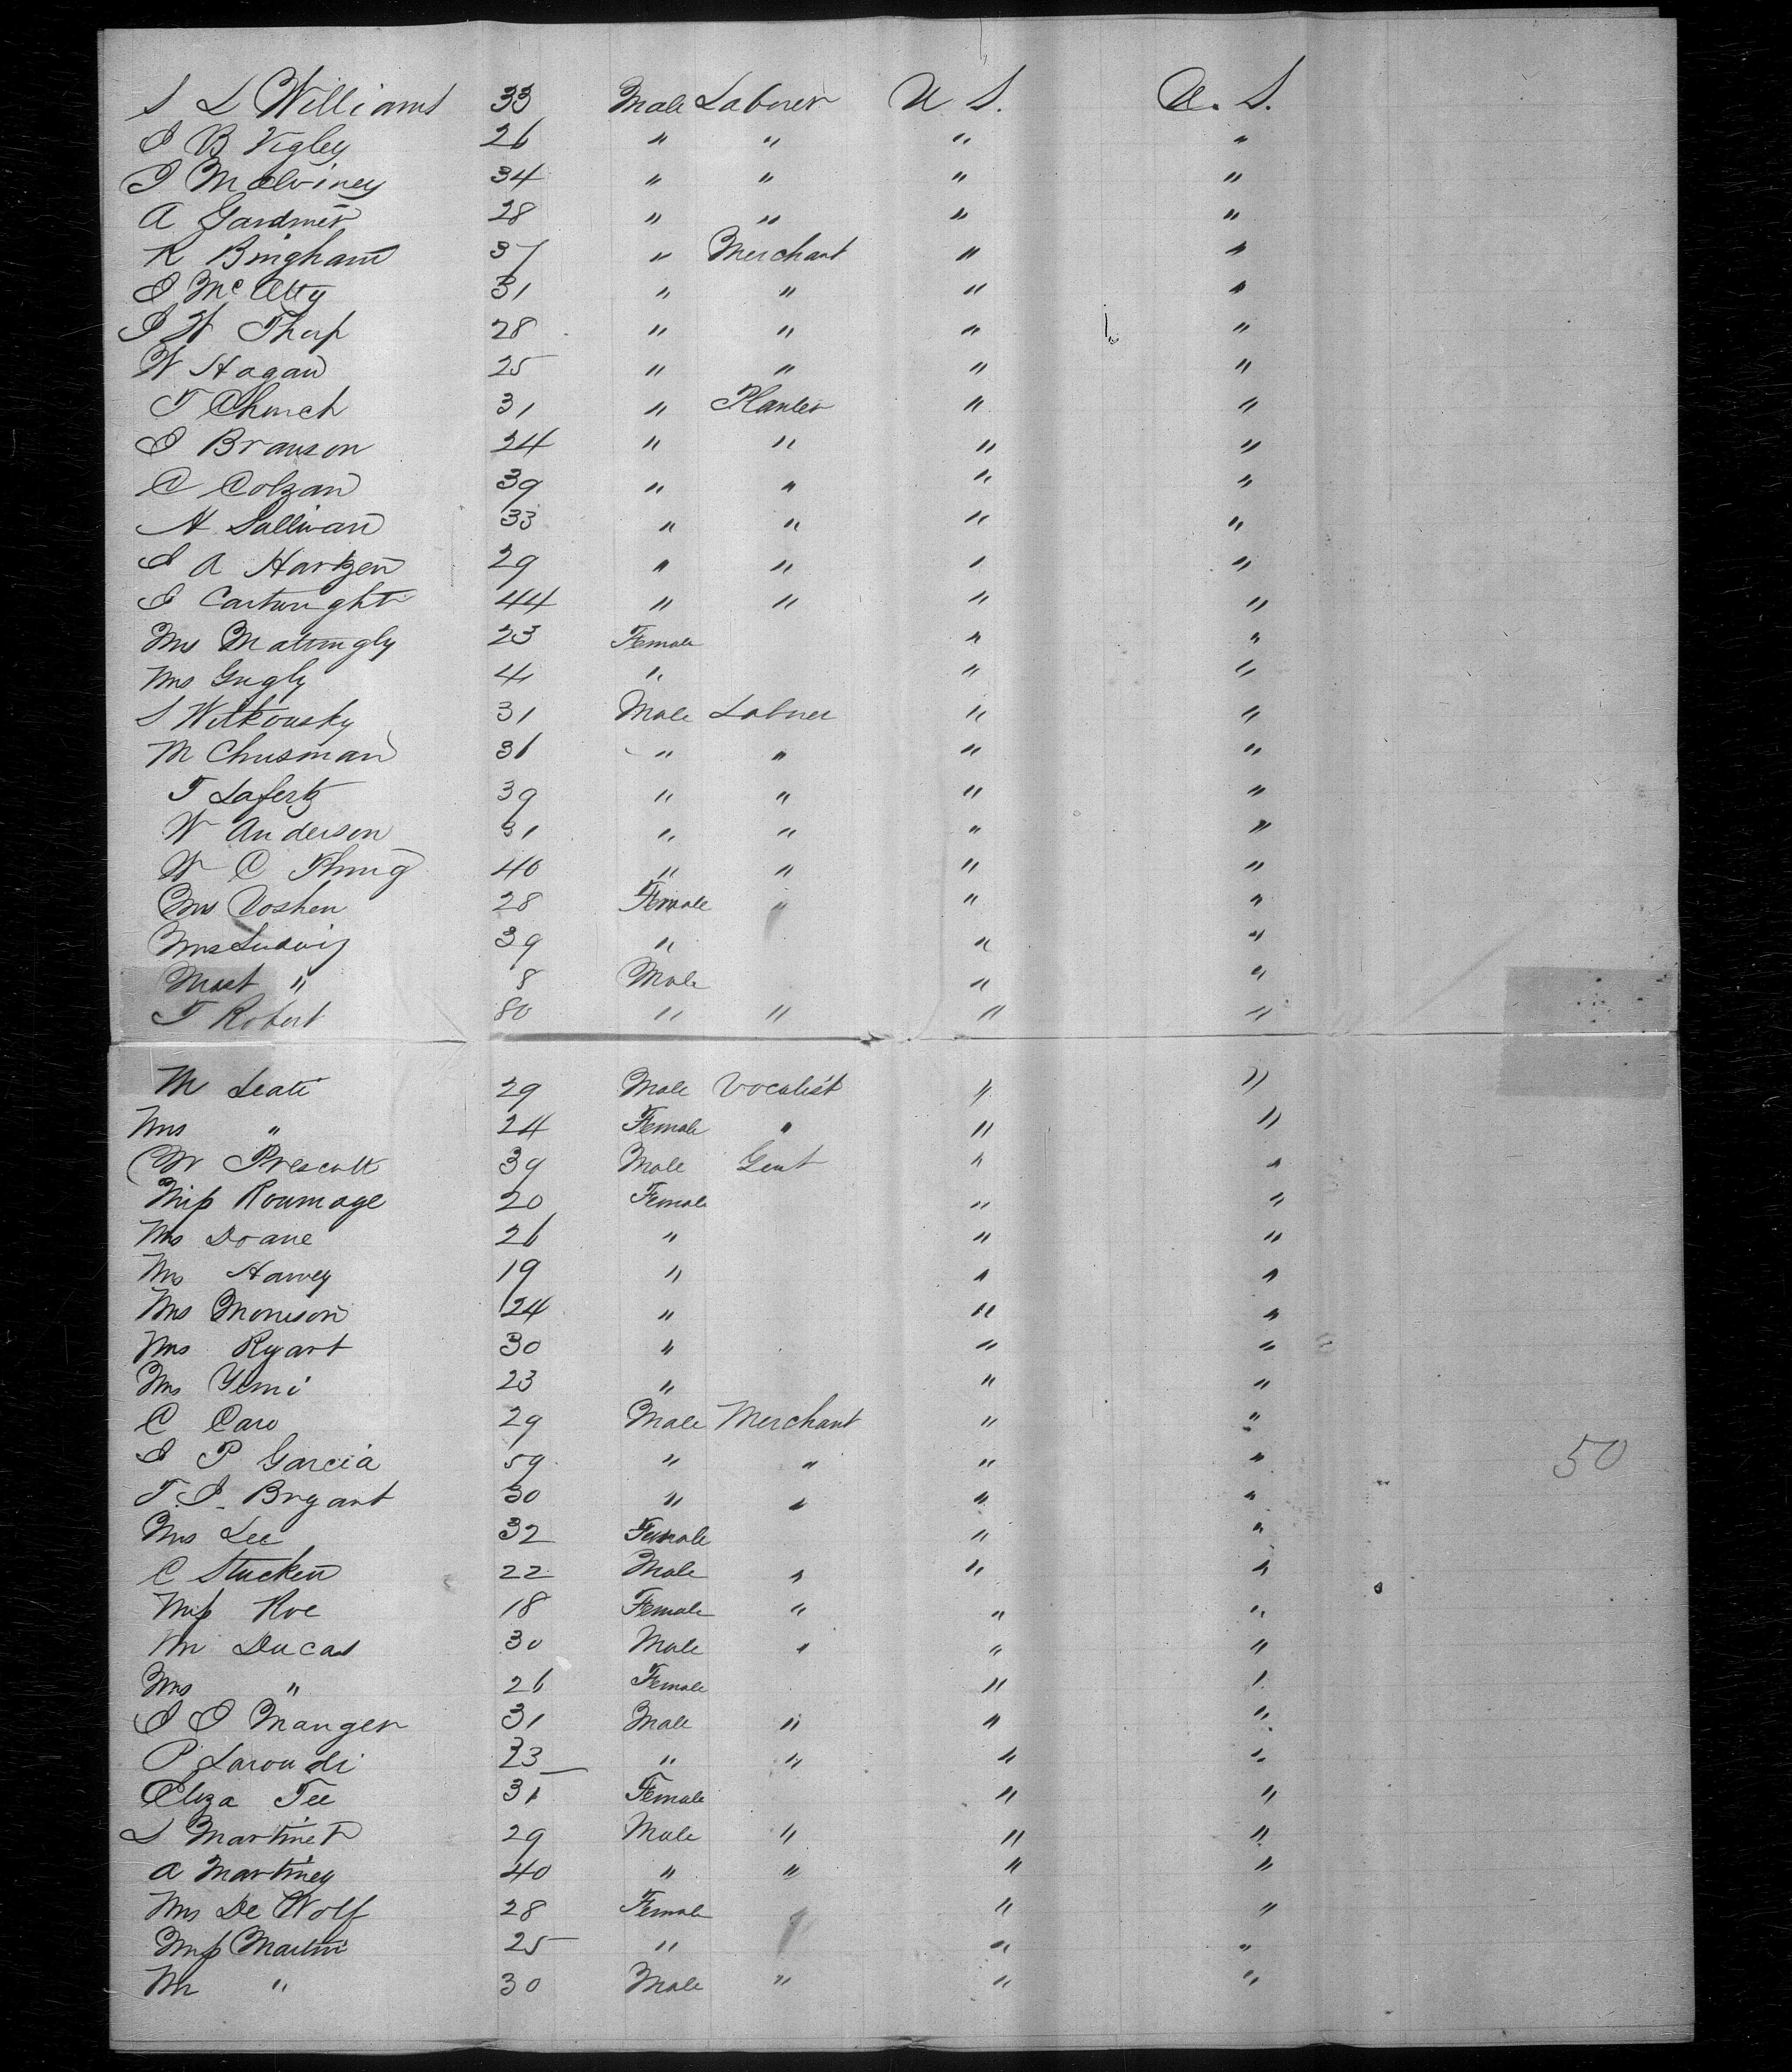 S L Williams 33 Male Laborer U S. U. S.
J B Vigley 26 " " " "
J McAlviney 34 " " " "
A Gardner 28 " " " "
R Bingham 37 " Merchant " "
J Mc Atty 31 " " " "
J W Thorp 28 " " " "
W Hagan 25 " " " "
T Church 31 " Planter " "
J Branson 24 " " " "
C Colgan 39 " " " "
H Sullivan 33 " " " "
J A Hartzen 29 " " " "
J Cartwright 44 " " " "
Mrs Mattingly 23 Female " "
Mrs Gugly 4 " " "
S Witkousky 31 Male Laborer " "
M Chusman 36 " " " "
T Lafertz 39 " " " "
W Anderson 31 " " " "
W C 40 " " " "
Mrs Voshen 28 Female " " "
Mrs Ludwig 39 " " "
Mast " 8 Male " "
T Robert 80 " " " "
M Leati 29 Male Vocalist " "
Mrs " 24 Female " " "
W Prescott 39 Male Gent " "
Miss Roumage 20 Female " "
Mrs Doane 26 " " "
Mrs Harvey 19 " " "
Mrs Morrison 24 " " "
Mrs Ryart 30 " " "
Mrs Yemi 23 " " "
C Caro 29 Male Merchant " "
J P Garcia 59 " " " "
50
T. J. Bryant 30 " " " "
Mrs Lee 32 Female " "
C Stucken 22 Male " " "
Miss Roe 18 Female " " "
Mr Ducas 30 Male " " "
Mrs " 26 Female " "
J O Manger 31 Male " " "
P Laroudi 23 " " " "
Eliza Tee 31 Female " "
L Martinet 29 Male " " "
A Martiney 40 " " " "
Mrs De Wolf 28 Female " "
Miss Martin 25 " " "
Mr " 30 Male " " "